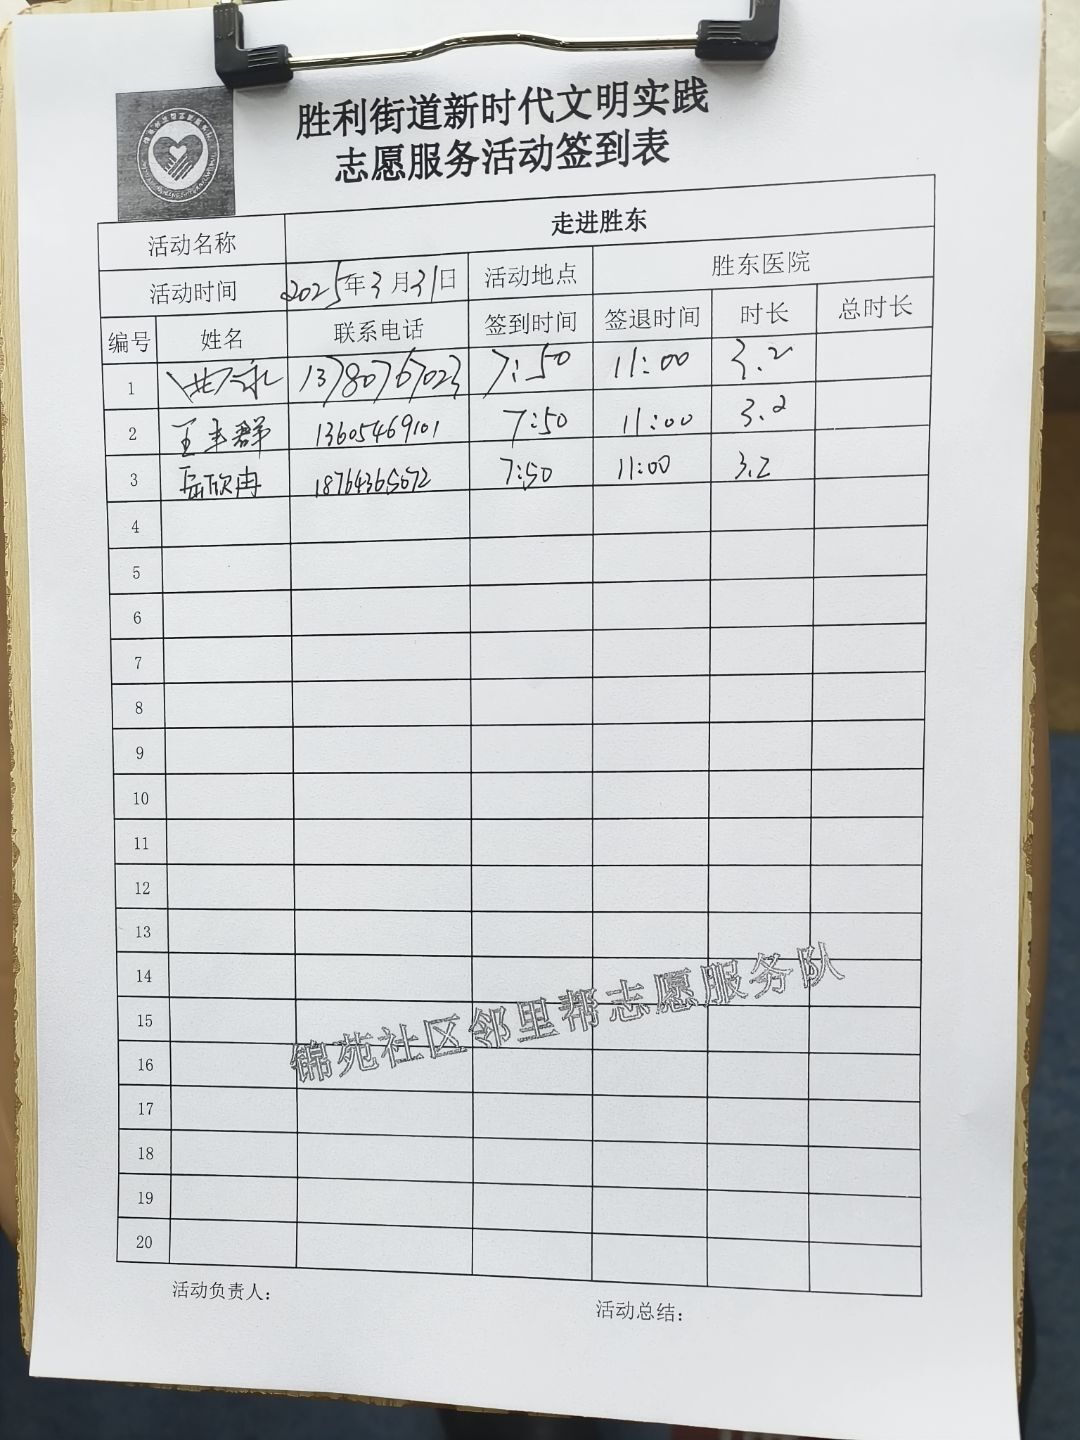 胜利街道新时代文明实践
志愿服务活动签到表
活动名称 走进胜东
活动时间 2025年3月31日 活动地点 胜东医院
编号 姓名 联系电话 签到时间 签退时间 时长 总时长
1 13780767023 7:50 11:00 3.2
2 王丰群 13605469101 7:50 11:00 3.2
3 岳欣冉 18764365072 7:50 11:00 3.2
4
5
6
7
8
9
10
11
12
13
14
15
16
17
18
19
20
锦苑社区邻里帮志愿服务队
活动负责人：
活动总结：